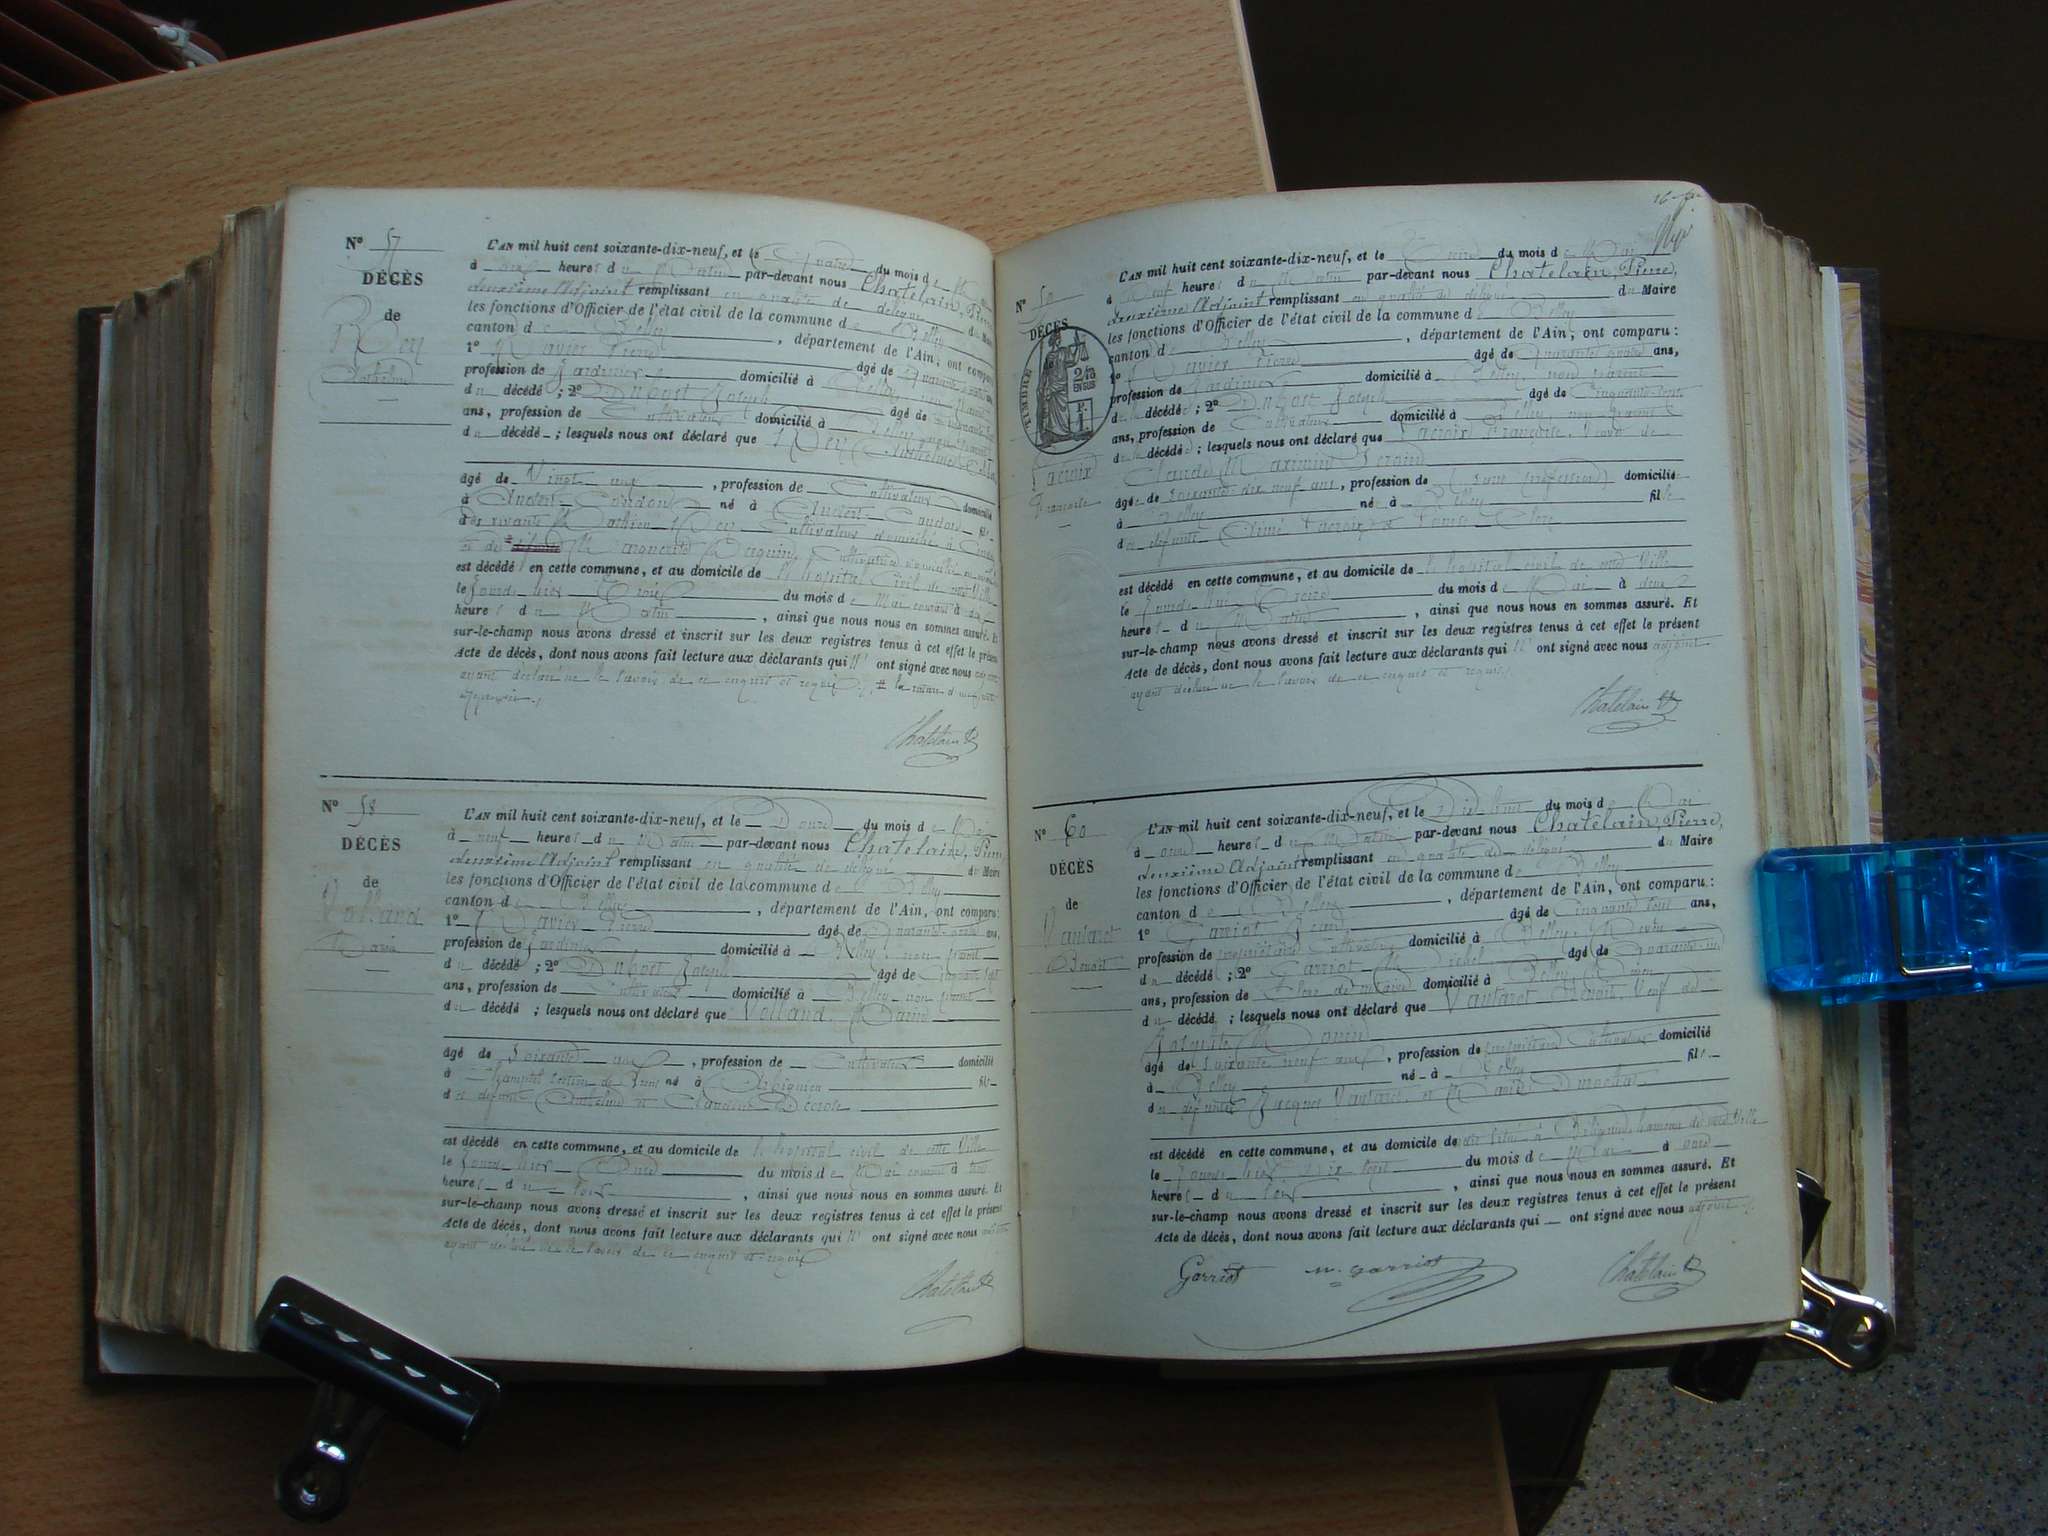 N° 57
DÉCÈS
de
Rey
Anthelme
L'AN mil huit cent soixante-dix-neuf, et le Quatre du mois de
à neuf heures du Matin par-devant nous Chatelain, Pierre
deuxième Adjoint remplissant en qualité de délégué du Maire
les fonctions d'Officier de l'état civil de la commune de Belley
canton de Belley, département de l'Ain, ont comparu
1° Ravier Pierre âgé de Quarante
profession de Jardinier domicilié à Belley non parent
du décédé ; 2° Dubost Joseph âgé de
ans, profession de Cultivateur domicilié à Belley
du décédé ; lesquels nous ont déclaré que Rey Anthelme
âgé de Vingt ans, profession de Cultivateur domicilié
à Andert-Condon né à Andert-Condon fils
Rey Cultivateur domicilié à
et de Marguerite
est décédé en cette commune, et au domicile de l'hôpital civil de cette Ville
le jour d'hier Trois du mois de Mai courant à
heures du Matin, ainsi que nous nous en sommes assuré. Et
sur-le-champ nous avons dressé et inscrit sur les deux registres tenus à cet effet le présent
Acte de décès, dont nous avons fait lecture aux déclarants qui n' ont signé avec nous
ayant déclaré ne le savoir de ce enquis et requis
Chatelain P
N° 58
DÉCÈS
de
Volland
Marie
L'AN mil huit cent soixante-dix-neuf, et le Douze du mois de Mai
à neuf heures du Matin par-devant nous Chatelain, Pierre
deuxième Adjoint remplissant en qualité de délégué du Maire
les fonctions d'Officier de l'état civil de la commune de Belley
canton de Belley, département de l'Ain, ont comparu :
1° Ravier Pierre âgé de Quarante-quatre ans,
profession de Jardinier domicilié à Belley non parent
du décédé ; 2° Dubost Joseph âgé de Cinquante sept
ans, profession de Cultivateur domicilié à Belley non parent
du décédé ; lesquels nous ont déclaré que Volland
âgé de Soixante ans, profession de Cultivateur domicilié
à né à Arbignieu fils
de défunt Anthelme et Claudine
est décédé en cette commune, et au domicile de l'hôpital civil de cette Ville
le jour d'hier Onze du mois de Mai courant à
heures du soir, ainsi que nous nous en sommes assuré. Et
sur-le-champ nous avons dressé et inscrit sur les deux registres tenus à cet effet le présent
Acte de décès, dont nous avons fait lecture aux déclarants qui n' ont signé avec nous
ayant déclaré ne le savoir de ce enquis et requis
Chatelain P
N° 59
DÉCÈS
TIMBRE
2/10
EN SUS
P.
1
Lacroix
Françoise
L'AN mil huit cent soixante-dix-neuf, et le Treize du mois de Mai
à Neuf heures du Matin par-devant nous Chatelain, Pierre,
deuxième Adjoint remplissant en qualité de délégué du Maire
les fonctions d'Officier de l'état civil de la commune de Belley
canton de Belley, département de l'Ain, ont comparu :
1° Ravier Pierre âgé de Quarante quatre ans,
profession de Jardinier domicilié à Belley non parent
de la décédée ; 2° Dubost Joseph âgé de Cinquante-sept
ans, profession de Cultivateur domicilié à Belley, non parent
de la décédée ; lesquels nous ont déclaré que Lacroix Françoise, Veuve de
Claude
âgée de soixante dix neuf ans, profession de (sans profession) domiciliée
à Belley née à Belley fille
de défunts Lacroix et
est décédé en cette commune, et au domicile de l'hôpital civil de cette Ville
le jour du mois de Mai à deux
heures du Matin, ainsi que nous nous en sommes assuré. Et
sur-le-champ nous avons dressé et inscrit sur les deux registres tenus à cet effet le présent
Acte de décès, dont nous avons fait lecture aux déclarants qui n' ont signé avec nous adjoint
ayant déclaré ne le savoir de ce enquis et requis
Chatelain P
N° 60
DÉCÈS
de
Vautaret
Benoit
L'AN mil huit cent soixante-dix-neuf, et le Dix huit du mois de Mai
à onze heures du Matin par-devant nous Chatelain, Pierre,
deuxième Adjoint remplissant en qualité de délégué du Maire
les fonctions d'Officier de l'état civil de la commune de Belley
canton de Belley, département de l'Ain, ont comparu :
1° Garriot Jean âgé de Cinquante trois ans,
profession de propriétaire Cultivateur domicilié à Belley, Neveu
du décédé ; 2° Garriot Michel âgé de Quarante-un
ans, profession de Clerc de notaire domicilié à Belley
du décédé ; lesquels nous ont déclaré que Vautaret Benoit, Veuf de
Josephte
âgé de Soixante neuf ans, profession de propriétaire Cultivateur domicilié
à Belley né à Belley fils
de défunts Jacques Vautaret et Marie
est décédé en cette commune, et au domicile de
le jour d'hier Dix sept du mois de Mai à onze
heures du soir, ainsi que nous nous en sommes assuré. Et
sur-le-champ nous avons dressé et inscrit sur les deux registres tenus à cet effet le présent
Acte de décès, dont nous avons fait lecture aux déclarants qui — ont signé avec nous adjoint
Garriot M. Garriot Chatelain P